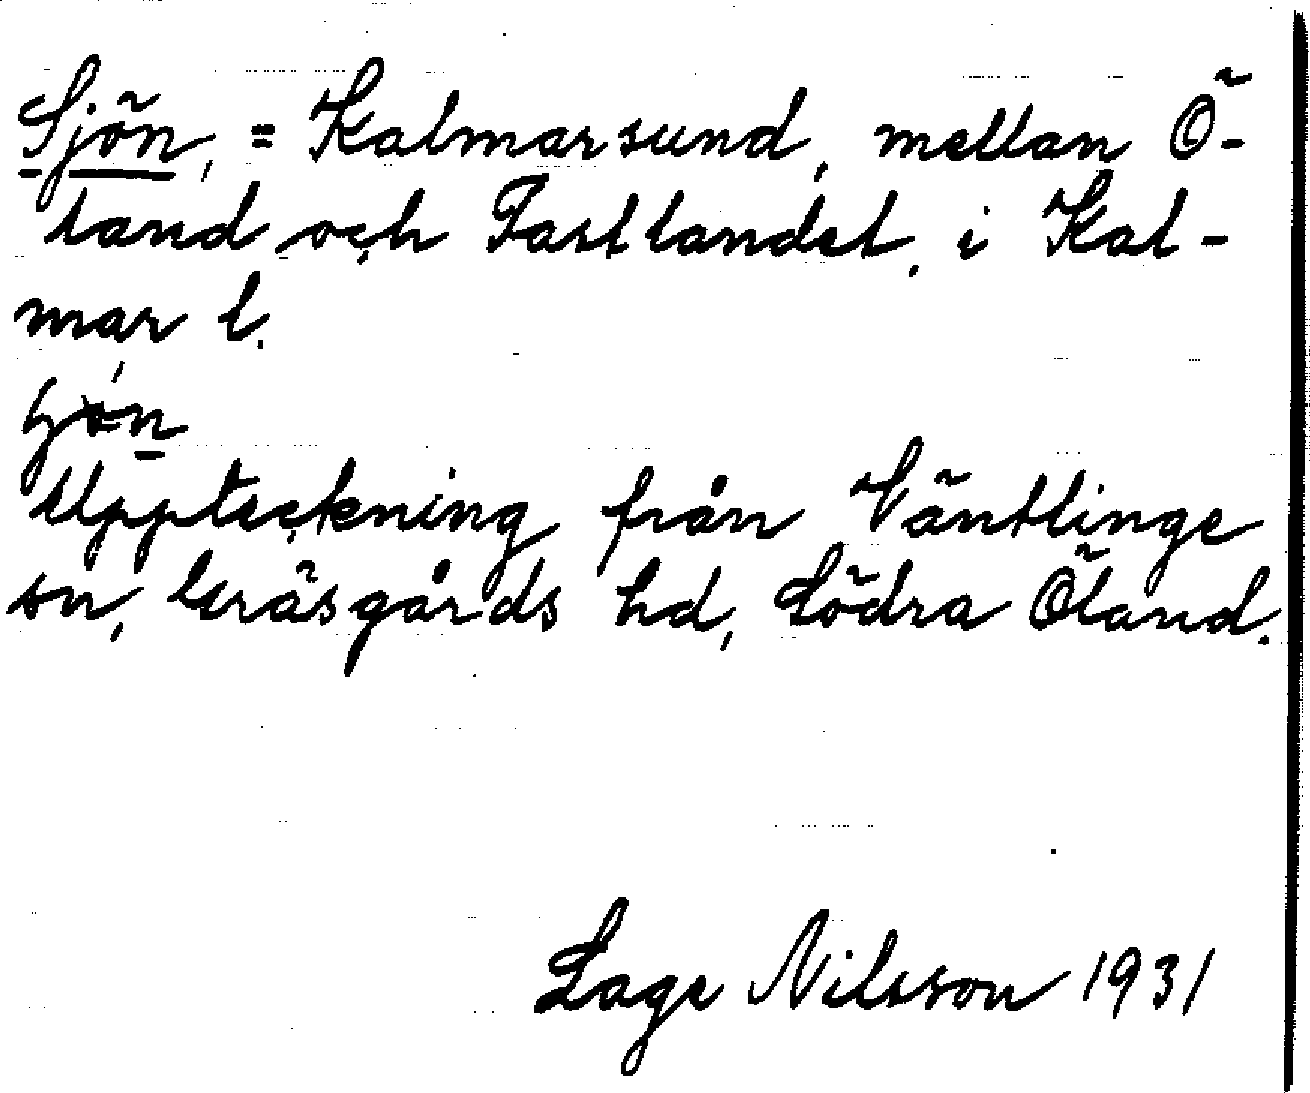 Sjön, = Kalmarsund, mellan Ö-
land och Fastlandet, i Kal-
mar l.
Uppteckning från Ventlinge
sn, Gräsgårds hd, Södra Öland.
Lage Nilsson 1931